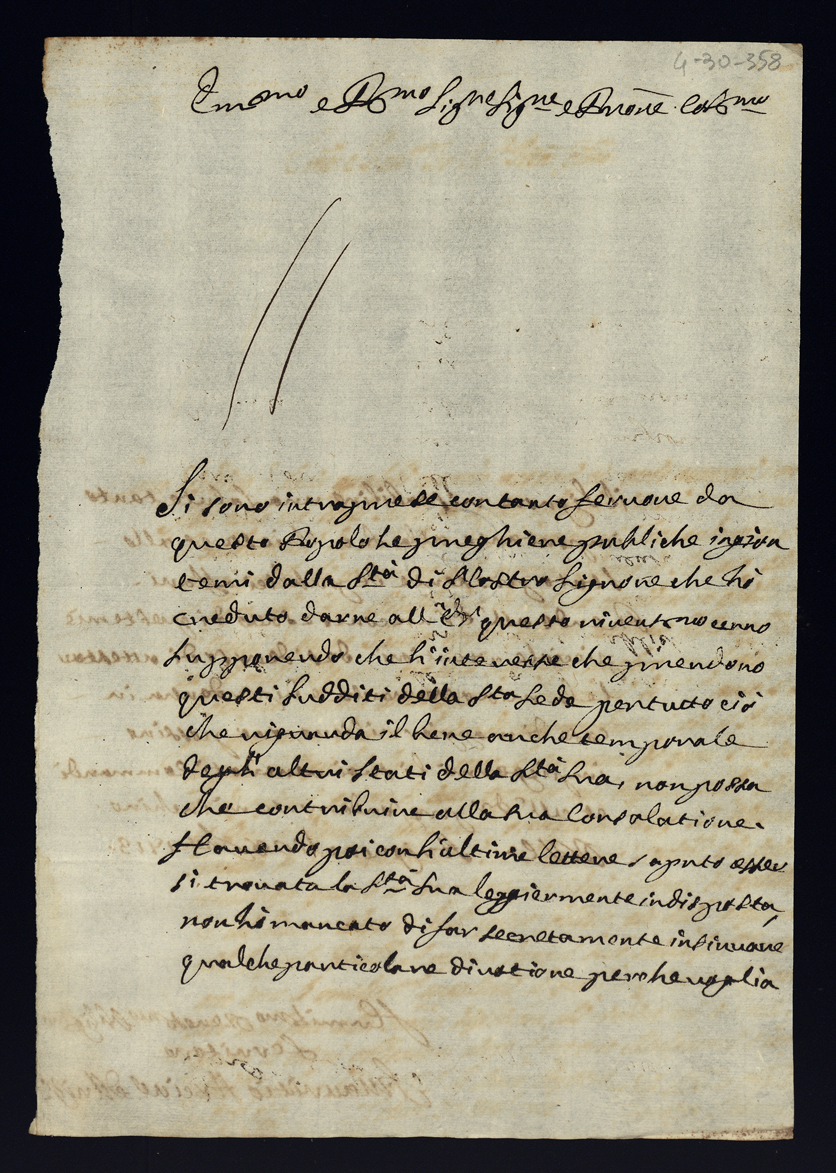 4-30-358
Em.mo e R.mo Sig.re Sig.re e Pñone Col.mo
Si sono intraprese con tanto fervore da
questo Popolo le preghiere publiche
dalla S.tà di Nostro Signore che hò
creduto darne all' questo rivent.mo cenno
supponendo che l'interesse che prendono
questi sudditi della S.ta Sede per tutto ciò
che riguarda il bene anche temporale
degl'altri stati della S.tà Sua, non possa
che contribuire alla sua Consolatione.
Havendo poi con l'ultime lettere saputo esser
si trovata la S.tà Sua leggiermente indisposta,
non hò mancato di far secretamente insinuare
qualche particolare divotione perche voglia